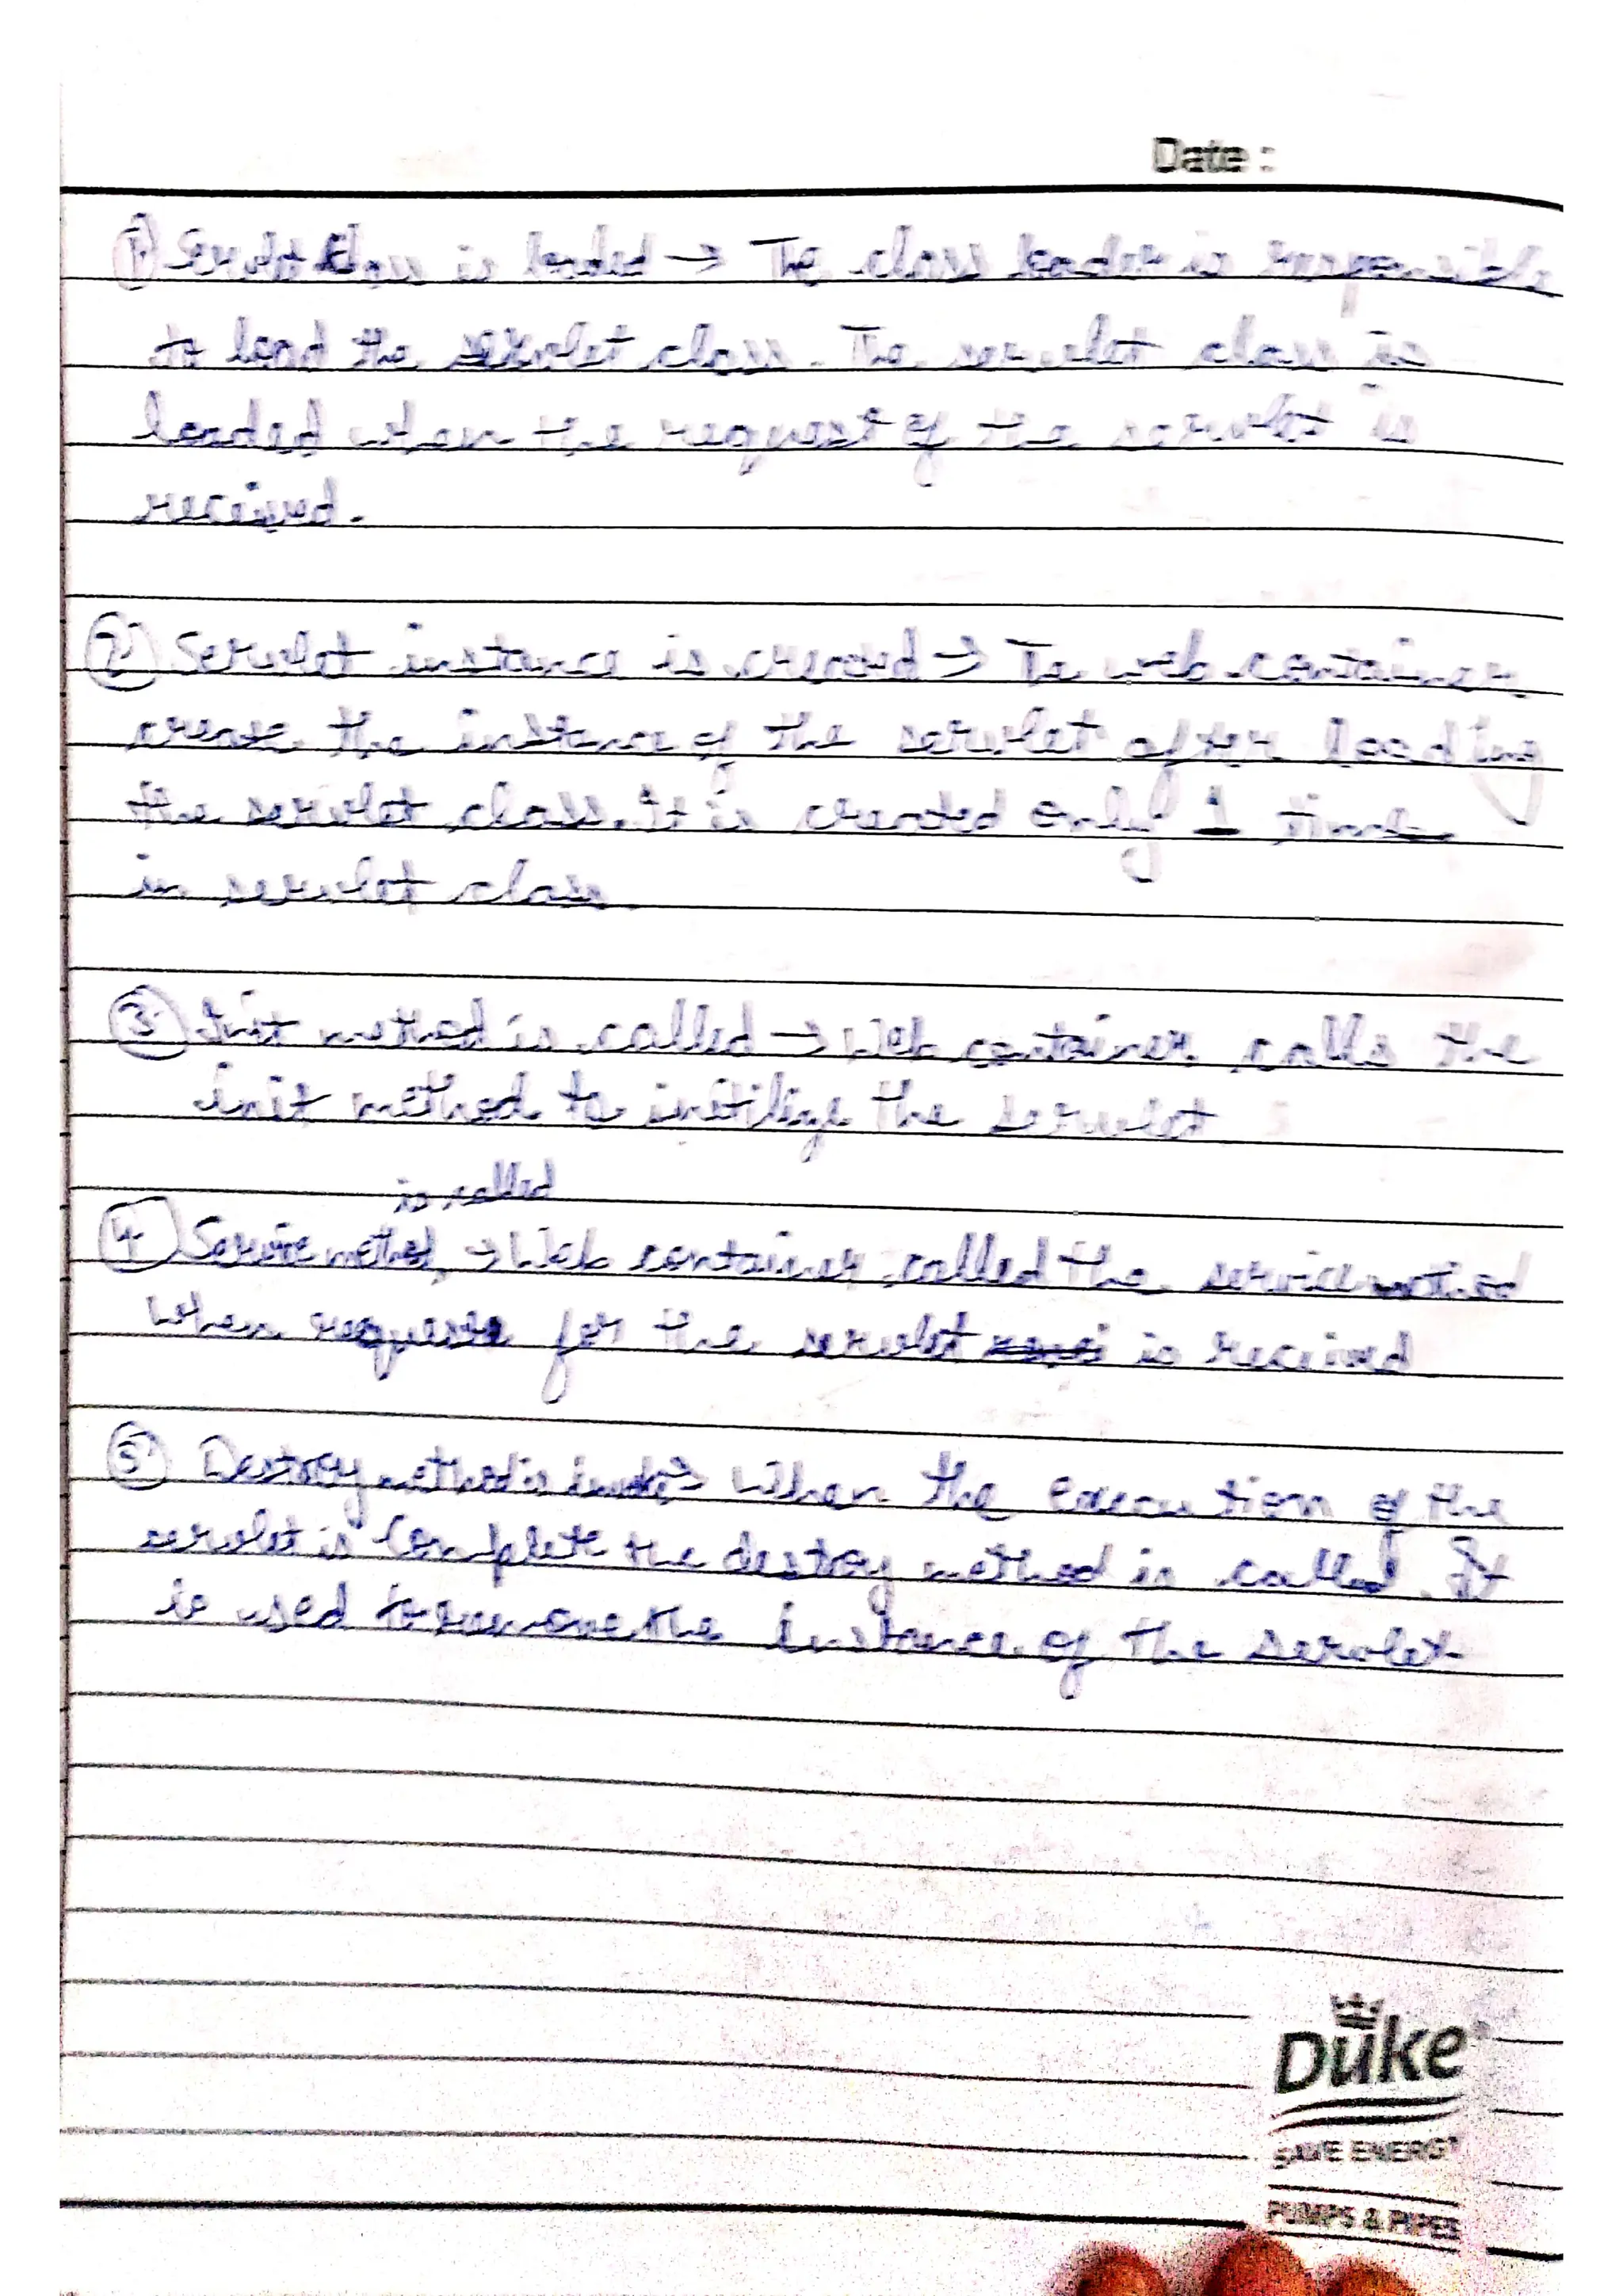 Date :
① Servlet class is loaded → The class loader is responsible
to load the servlet class. The servlet class is
loaded when the request of the servlet is
received.
② Servlet instance is created → The web container
create the instance of the servlet after loading
the servlet class. It is created only 1 time
in servlet class.
③ Init method is called → Web container calls the
init method to initilize the servlet
is called
④ Service method, → Web container called the service method
when request for the servlet is received
⑤ Destroy method is invoke → When the execution of the
servlet is Complete the destroy method is called. It
is used to remove the instance of the servlet.
Duke
SAVE ENERGY
PUMPS & PIPES